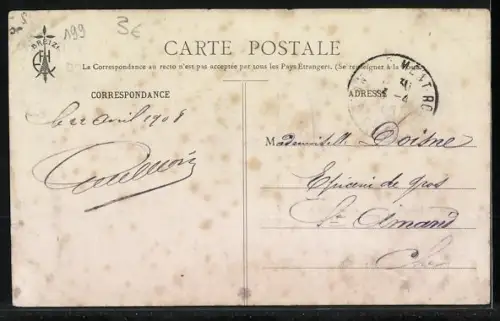 199
3€
BREIZ
CARTE POSTALE
La Correspondance au recto n'est pas acceptée par tous les Pays Étrangers. (Se renseigner à la Poste)
CORRESPONDANCE
ADRESSE
MENT RO
Le 2 avril 1908
Mademoiselle Doisne
Epicerie de gros
St Amand
Cher